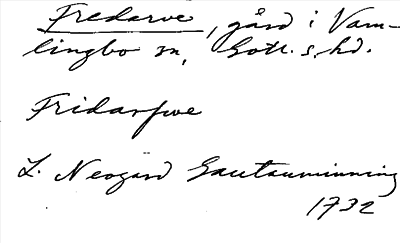 Fredarve, gård i Vam-
lingbo sn, Gotl. s. hd.
Fridarfwe
L. Neogard Gautauminning
1732